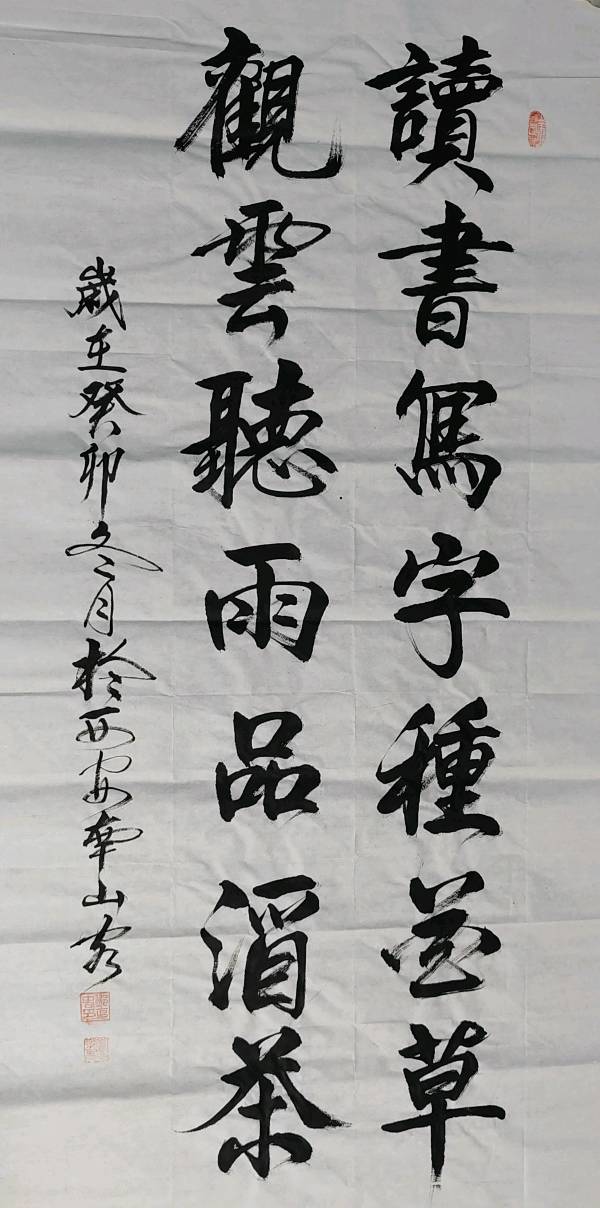 讀書寫字種花草
觀雲聽雨品酒茶
歲在癸卯冬月於西安南山客